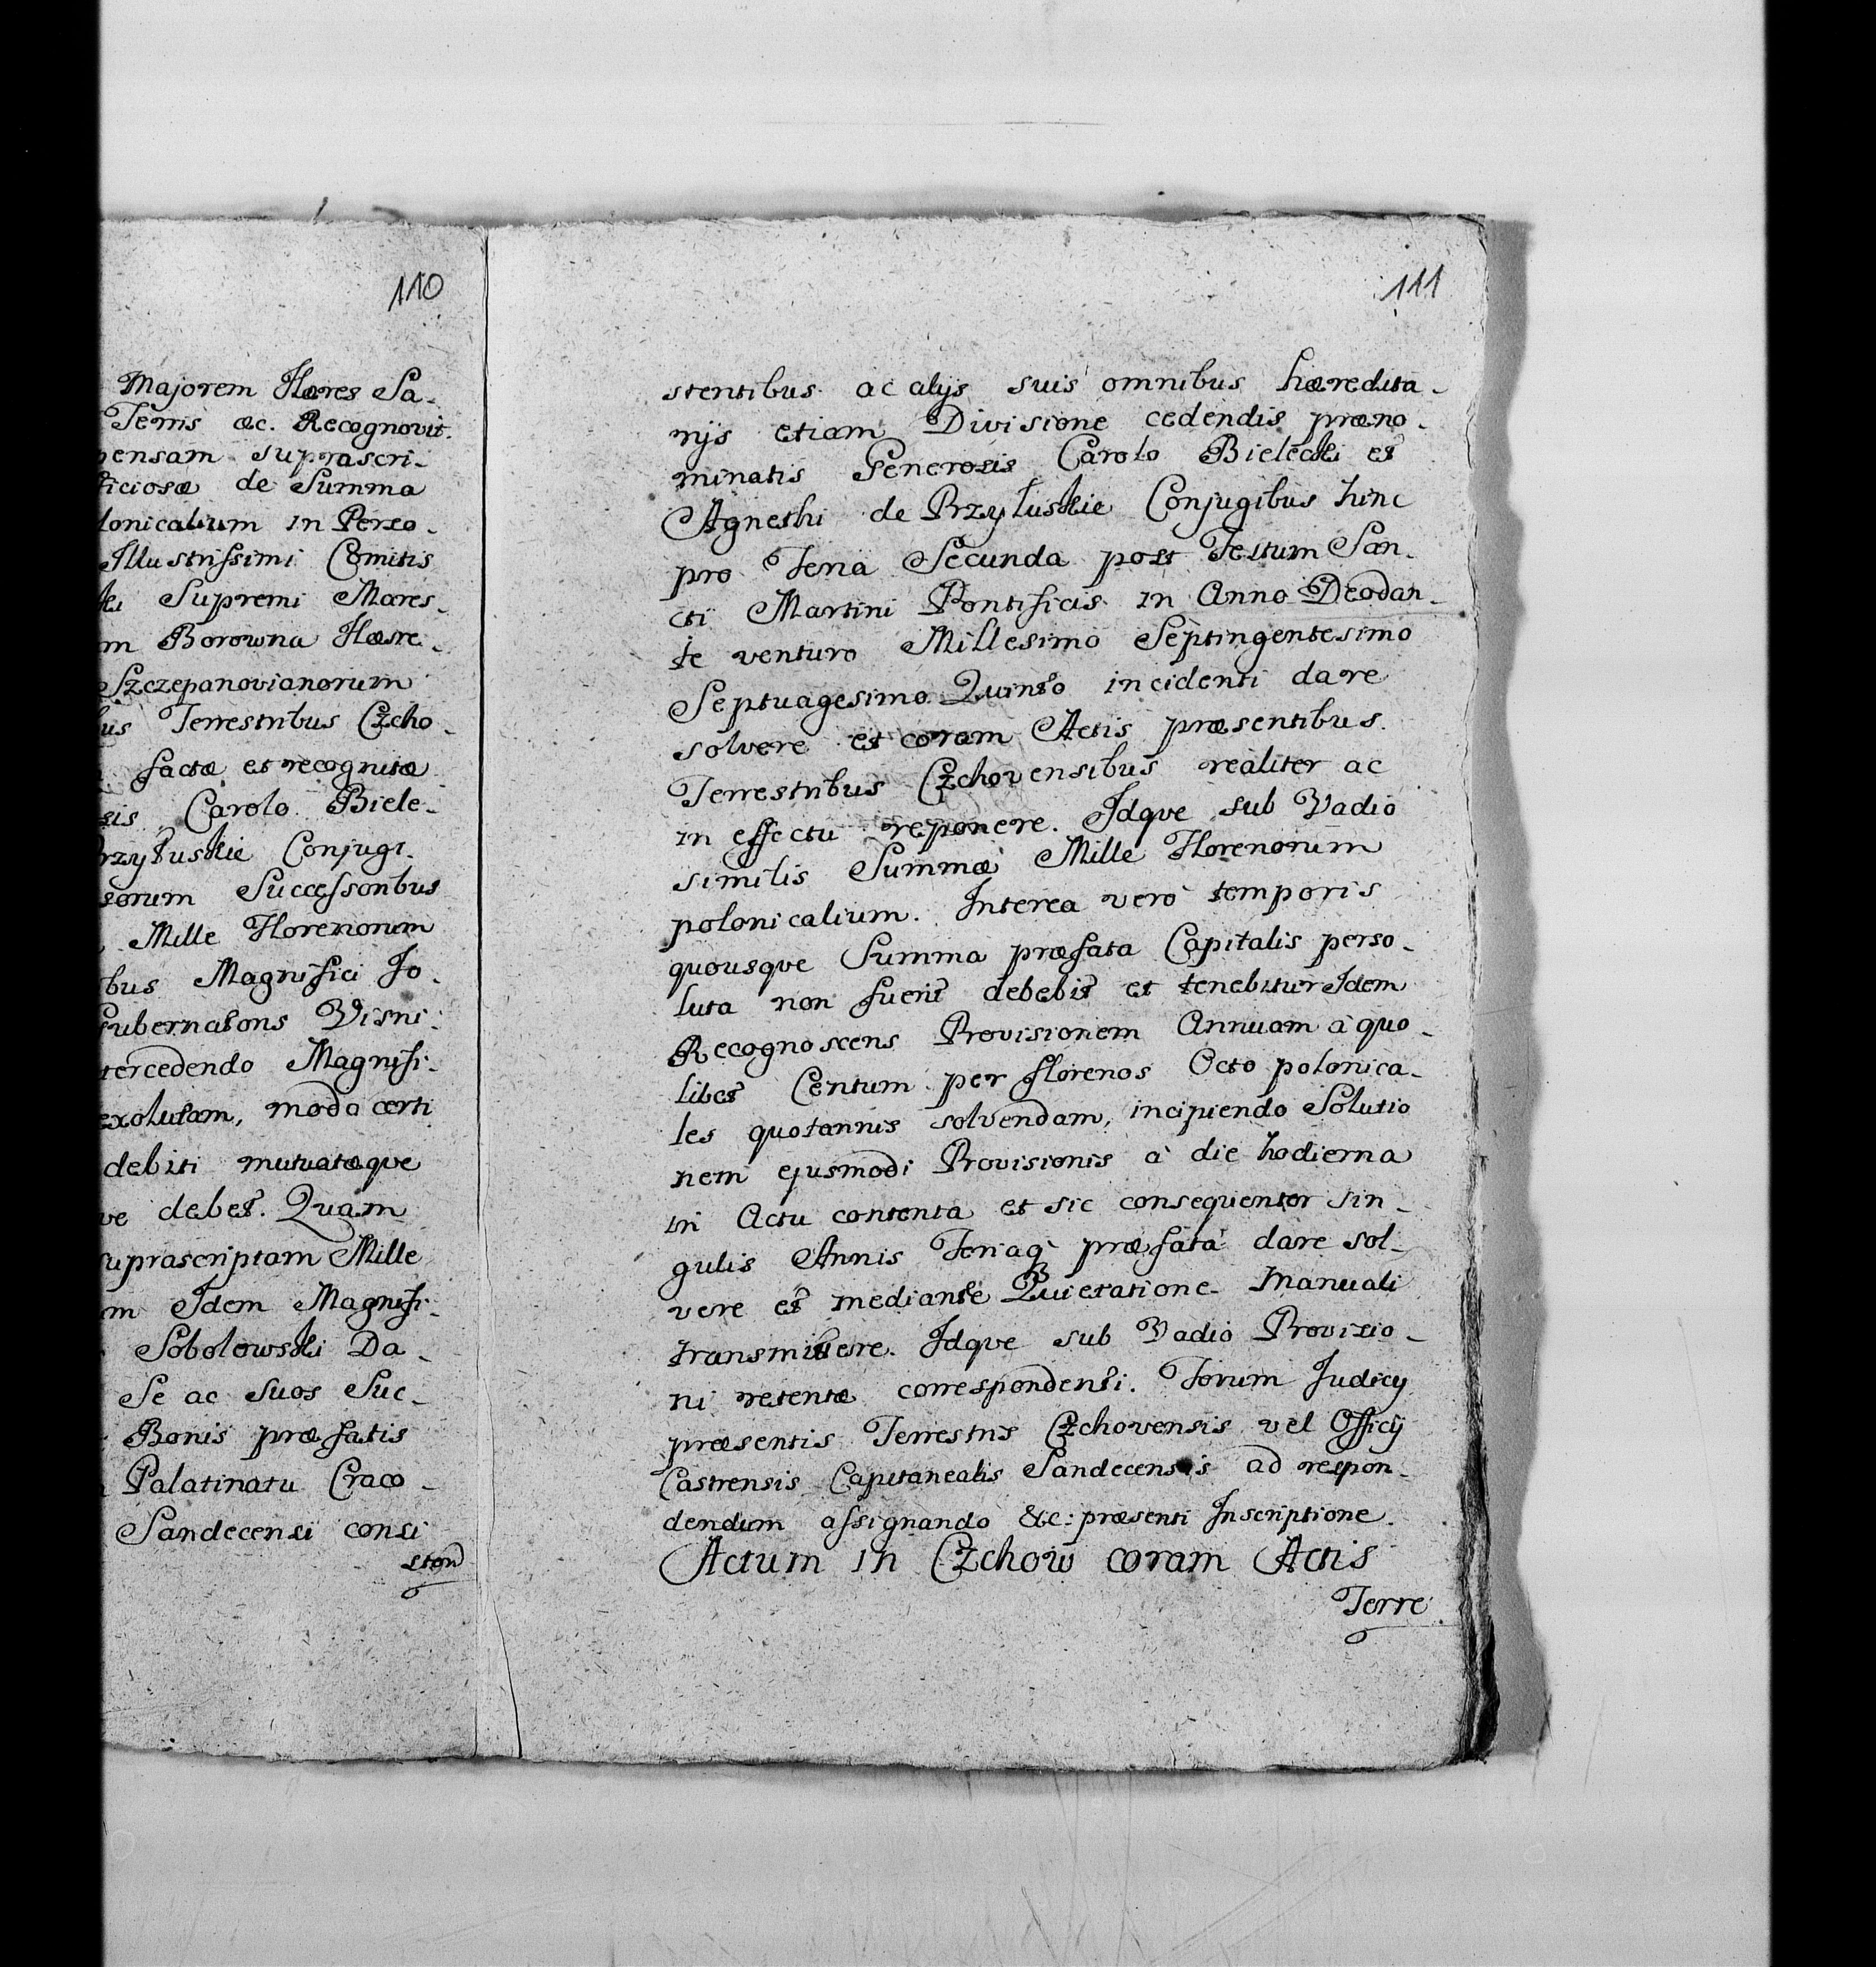 110
Majorem Hæres Sa-
Terris ac. Recognovit.
pensam suprascri-
ficiosa de Summa
lonicalium in Perso-
Illustrissimi Comitis
ki Supremi Mares-
m Borowna Hære-
Szczepanovianorum
bus Terrestribus Czcho-
facta et recognita
sis Carolo Biele-
rzyłuskie Conjugi-
sorum Successoribus
Mille Florenorum
bus Magnifici Jo-
Gubernatoris Visni-
tercedendo Magnifi-
exolutam, modo certi
debiti mutuatæque
ve debet. Quam
suprascriptam Mille
m Idem Magnifi-
Sobolowski Da-
Se ac Suos Suc-
Bonis præfatis
Palatinatu Craco-
Sandecensi consi
sten
111
stentibus ac alijs suis omnibus hæredita-
rijs etiam Divisione cedendis præno-
minatis Generosis Carolo Bielecki et
Agneshi de Przyłuskie Conjugibus hinc
pro Feria Secunda post Festum San-
cti Martini Pontificis in Anno Deodan-
te venturo Millesimo Septingentesimo
Septuagesimo Quinto incidenti dare
solvere et coram Actis præsentibus
Terrestribus Czchovensibus realiter ac
in effectu reponere. Idqve sub Vadio
similis Summæ Mille Florenorum
polonicalium. Interea vero temporis
quousqve Summa præfata Capitalis perso-
luta non fuerit debebit et tenebitur Idem
Recognoscens Provisionem Annuam à quo-
libet Centum per florenos Octo polonica-
les quotannis solvendam, incipiendo Solutio
nem ejusmodi Provisionis à die hodierna
in Actu contenta et sic consequenter sin-
gulis Annis Feriaq præfata dare sol-
vere et mediante Quietatione Manuali
transmittere. Idqve sub Vadio Provisio-
ni retentæ correspondenti. Forum Judicij
præsentis Terrestris Czchovensis vel Officij
Castrensis Capitanealis Sandecensis ad respon-
dendum assignando &c: præsenti Inscriptione.
Actum in Czchow coram Actis
Terre